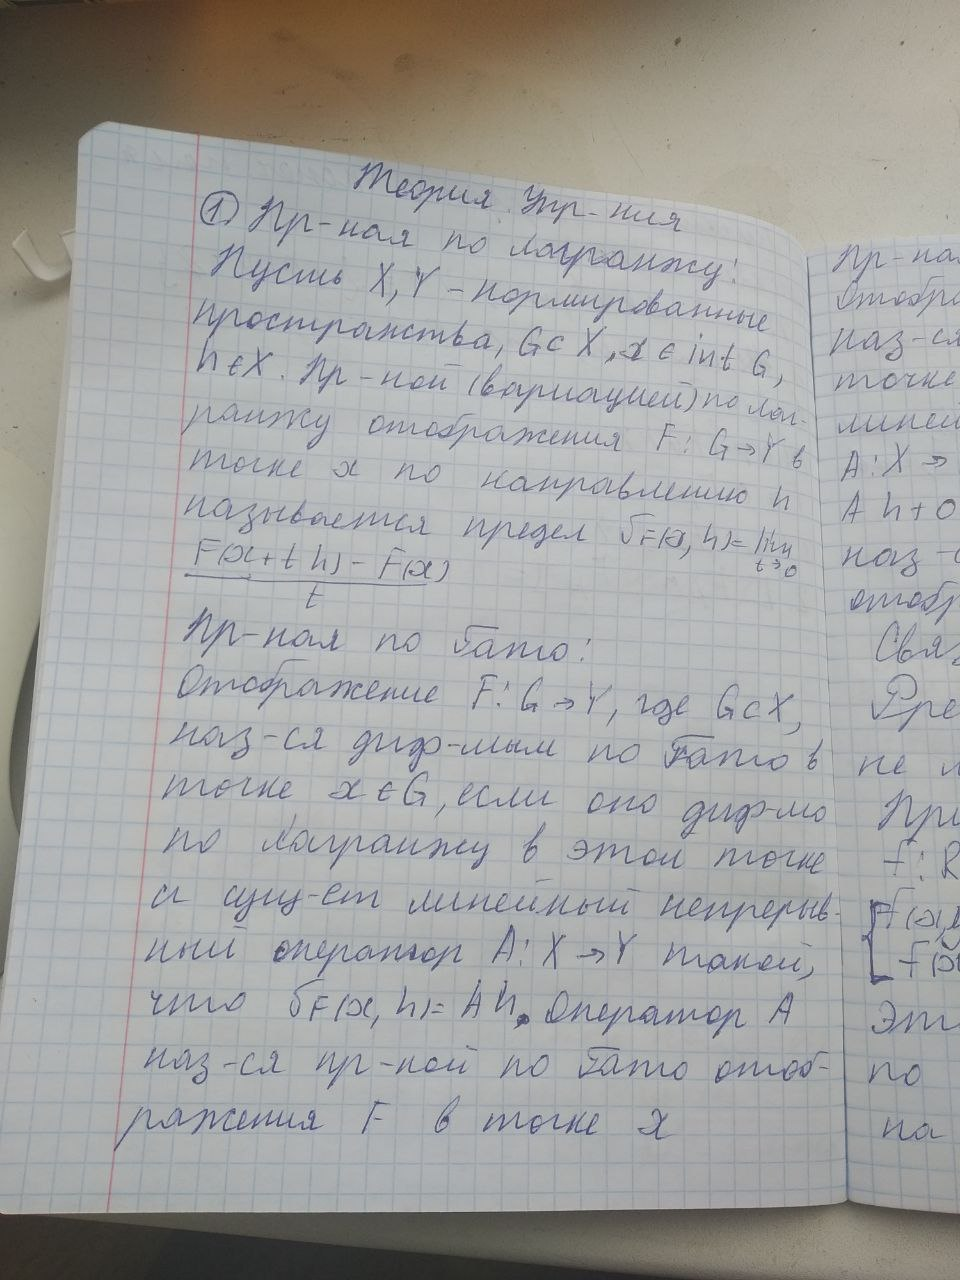 Теория Упр-ния
① Пр-ная по Лагранжу:
Пусть X, Y - нормированные
пространства, G⊂X, x ∈ int G,
h∈X. Пр-ной (вариацией) по Лаг-
ранжу отображения F: G→Y в
точке x по направлению h
называется предел δF(x, h)= lim t→0
F(x+t h) - F(x)
t
Пр-ная по Гато:
Отображение F: G→Y, где G⊂X,
наз-ся диф-мым по Гато в
точке x∈G, если оно диф-мо
по Лагранжу в этой точке
и сущ-ет линейный непрерыв-
ный оператор A: X→Y такой,
что δF(x, h)= Ah. Оператор A
наз-ся пр-ной по Гато отоб-
ражения F в точке x
Пр-ная
Отобра
наз-ся
точке
линей
A: X →
A h + o
наз-с
отобр
Связ
Фре
не
При
f: R
f(x,
f(x
Эт
по
на